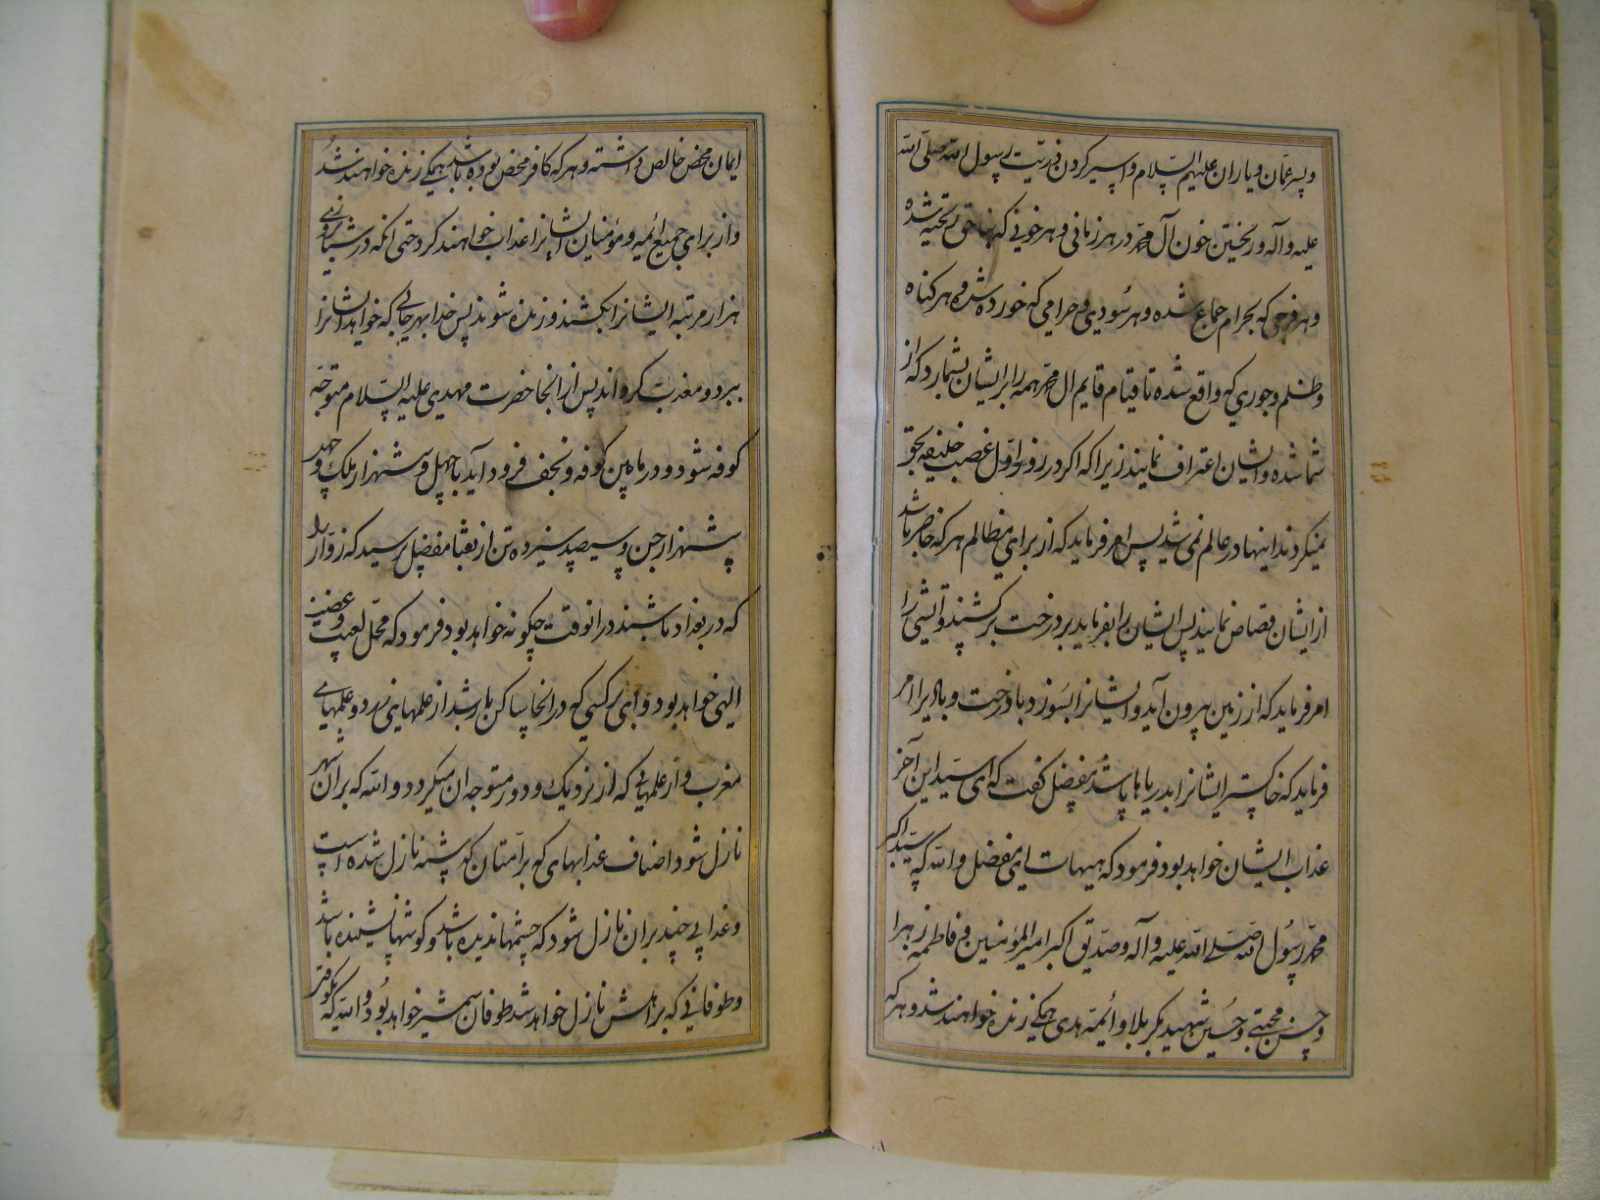 و پسر عمان و یاران علیهم السلام و اسیر کردن ذریت رسول الله صلی الله
علیه و آله و ریختن خون آل محمد در هر زمانی و هر خونی که بناحق ریخته شده
و هر فرجی که بحرام جماع شده و هر سودی و حرامی که خورده شده و هر کناه
و ظلم و جوری که واقع شده تا قیام قایم ال محمد همه را بر ایشان بشمارد که از
شما شده و ایشان اعتراف نمایند زیرا که اکر در روز اول غصب خلیفه بحق
نمیکردند اینها در عالم نمی شد پس امر فرماید که از برای مظالم هر که حاضر باشد
از ایشان قصاص نمایند پس ایشان را بفرماید بر درخت برکشند و آتشی را
امر فرماید که از زمین بیرون آید و ایشانرا بسوزد با درخت و بادیرا امر
فرماید که خاکستر ایشانرا بدریاها پاشد مفضل کفت که ای سید این آخر
عذاب ایشان خواهد بود فرمود که هیهات ای مفضل و الله که سید اکبر
محمد رسول الله صلی الله علیه و آله و صدیق اکبر امیر المؤمنین و فاطمه زهرا
و حسن مجتبی و حسین شهید بکربلا و ائمه هدی همکی زنده خواهند شد و هر که
ایمان محض خالص داشته و هر که کافر محض بوده باشد همکی زنده خواهند شد
و از برای جمیع ائمه و مؤمنان ایشانرا عذاب خواهند کرد حتی آنکه در شبانروزی
هزار مرتبه ایشانرا بکشند و زنده شوند پس خدا بهر جائی که خواهد ایشانرا
ببرد و معذب کرداند پس از انجا حضرت مهدی علیه السلام متوجه
کوفه شود و در مابین کوفه و نجف فرود آید با چهل و شش هزار ملک و
شش هزار جن و سیصد و سیزده تن از نقبا مفضل پرسید که زوار
که در بغداد باشند در انوقت چکونه خواهد بود فرمود که محل لعنت و غضب
الهی خواهد بود و وای بر کسی که در انجا ساکن باشد از علمهای زرد و علمهای
مغرب و از علمهایی که از نزدیک و دور متوجه ان میکردد و الله که بر ان شهر
نازل شود اصناف عذابهای که بر امتان کذشته نازل شده است
و عذابی چند بر ان نازل شود که چشمها ندیده باشد و کوشها نشنیده باشد
و طوفانی که بر اهلش نازل خواهد شد طوفان شمشیر خواهد بود و الله که یکوقتی